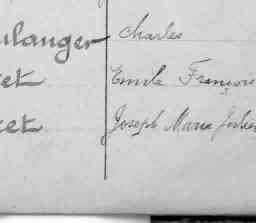 ulanger Charles
et Emile François
et Joseph Marie